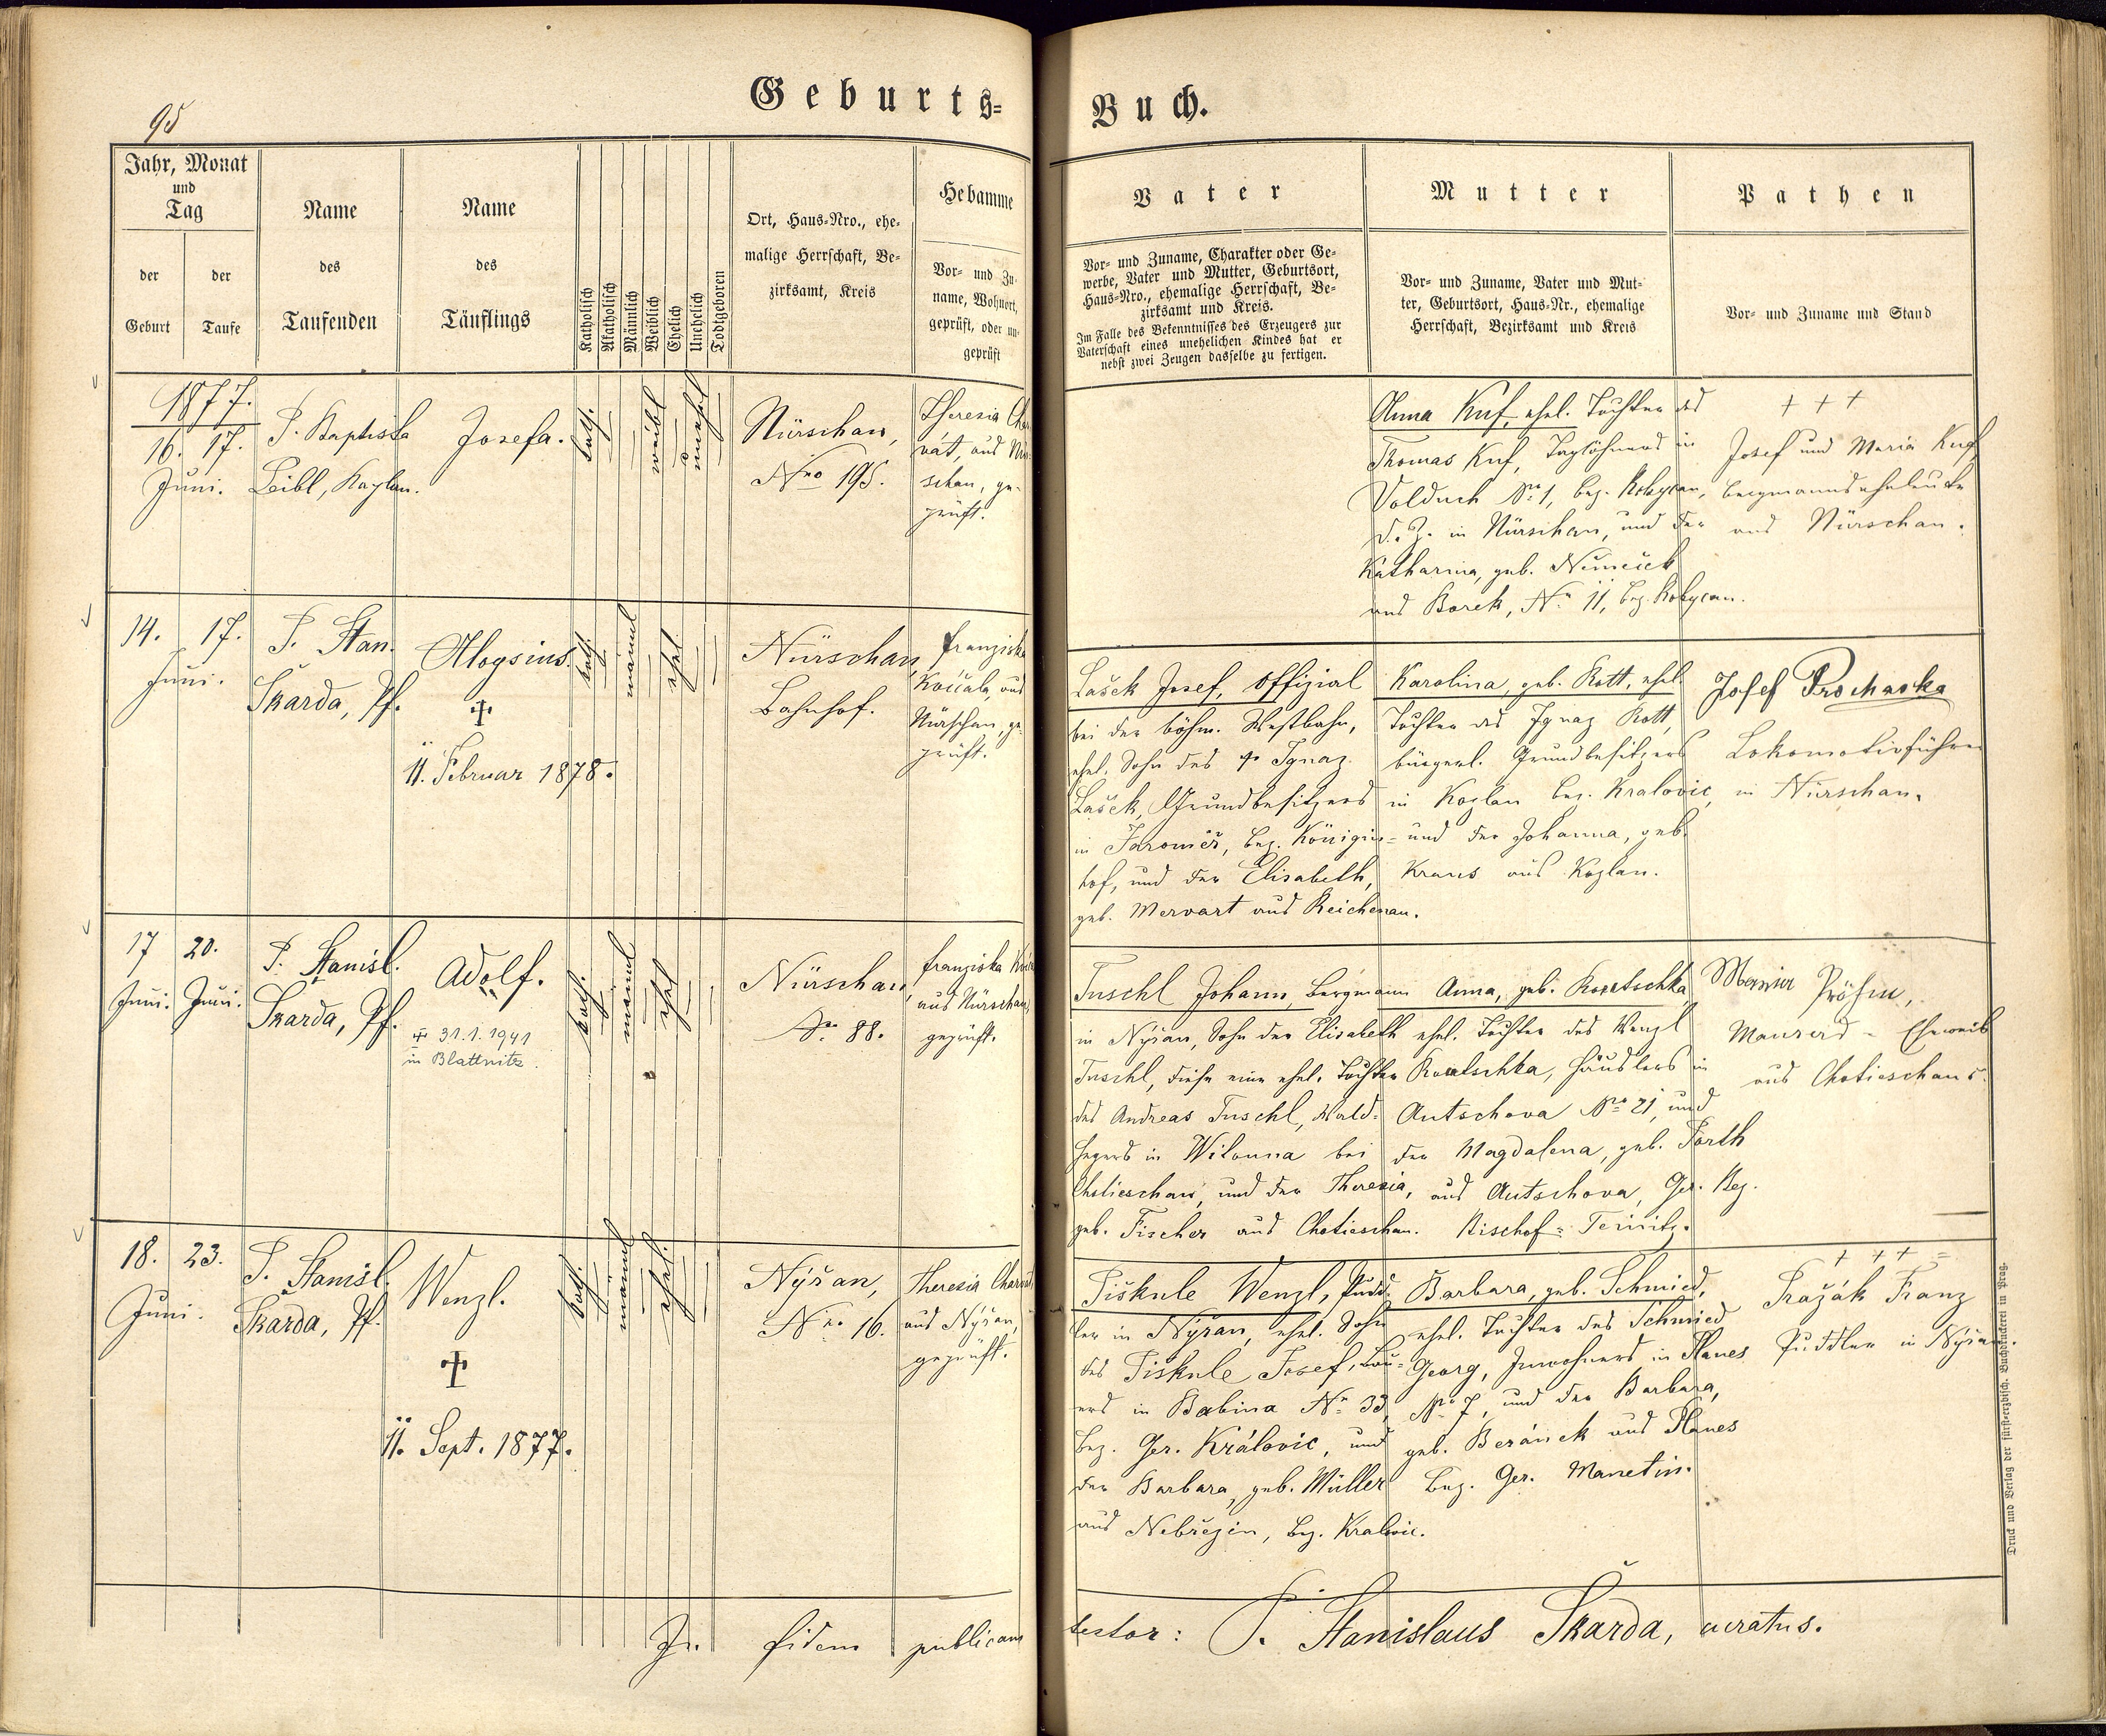 Geburts=
Buch.
95
Jahr, Monat
und
Tag
der
Geburt
der
Taufe
Name
des
Taufenden
Name
des
Täuflings
Katholisch
Akatholisch
Männlich
Weiblich
Ehelich
Unehelich
Todtgeboren
Ort, Haus=Nro., ehe=
malige Herrschaft, Be=
zirksamt, Kreis
Hebamme
Vor= und Zu=
name, Wohnort,
geprüft, oder un=
geprüft
Vater
Vor= und Zuname, Charakter oder Ge=
werbe, Vater und Mutter, Geburtsort,
Haus=Nro., ehemalige Herrschaft, Be=
zirksamt und Kreis.
Im Falle des Bekenntnisses des Erzeugers zur
Vaterschaft eines unehelichen Kindes hat er
nebst zwei Zeugen dasselbe zu fertigen.
Mutter
Vor= und Zuname, Vater und Mut=
ter, Geburtsort, Haus=Nr., ehemalige
Herrschaft, Bezirksamt und Kreis
Pathen
Vor= und Zuname und Stand
1877.
16. 17.
Juni.
P. Baptista
Leibl, Kaplan.
Josefa.
kath.
weibl
unehel
Nürschan,
Nro 195.
Theresia
vát, aus
schan, ge-
prüft.
Anna Kuf, ehel. Tochter des
Thomas Kuf, Taglöhners in
Volduch No 1, bez. Rokycan,
d. Z. in Nürschan, und der
Katharina, geb. Němeček
aus Borek, No 11, bez. Rokycan.
+ + +
Josef und Maria Kuf
Bergmannseheleute
aus Nürschan.
14. 17.
Juni.
P. Stan.
Skarda, Pf.
Aloysius.
11. Februar 1878.
kath.
männl
ehel.
Nürschan
Bahnhof.
Franziska
Kočcala, aus
Nürschan, ge-
prüft.
Lašek Josef, Offizial
bei der böhm. Westbahn,
ehel. Sohn des Ignaz
Lašek, Grundbesitzers
in Jaroměř, bez. Königin=
hof, und der Elisabeth,
geb. Mervart aus Reichenau.
Karolina, geb. Rott, ehel.
Tochter des Ignaz Rott,
bürgerl. Grundbesitzers
in Kozlan bez. Kralovic,
und der Johanna, geb.
Kraus aus Kozlan.
Josef Prochaska
Lokomotivführer
in Nürschan.
17 20.
Juni. Juni.
P. Stanisl.
Skarda, Pf.
Adolf.
31.1.1941
in Blattnitz.
kath.
männl
ehel
Nürschan,
No 88.
Franziska
aus Nürschan,
geprüft.
Tuschl Johann, Bergmann
in Nýřan, Sohn der Elisabeth
Tuschl, diese eine ehel. Tochter
des Andreas Tuschl, Wald=
hegers in Wilouna bei
Chotieschau, und der Theresia,
geb. Fischer aus Chotieschau.
Anna, geb.
ehel. Tochter des Wenzl
Häuslers in
Autschova No 21, und
der Magdalena, geb. Forth
aus Autschova, Ger. Bez.
Bischof=Teinitz.
Maurers-Eheweib
aus Chotieschau.
18. 23.
Juni.
P. Stanisl.
Skarda, Pf.
Wenzl.
11. Sept. 1877.
kath.
männl
ehel.
Nýřan,
Nro 16.
Theresia
aus Nýřan,
geprüft.
Piskule Wenzl, Pudd=
ler in Nýřan, ehel. Sohn
des Piskule Josef, Bau=
ers in Babina No 33,
bez. Ger. Královic, und
der Barbara, geb. Müller
aus Nebřezin, bez. Kralovic.
Barbara, geb. Schmied,
ehel. Tochter des Schmied
Georg, Inwohners in Planes
No 7, und der Barbara,
geb. Beránek aus Planes
bez. Ger. Manetin.
+ + + =
Pražák Franz
Puddler in Nýřan.
In fidem publicam
testor: P. Stanislaus Škarda, curatus.
Druck und Verlag der fürsterzbisch. Buchdruckerei in Prag.